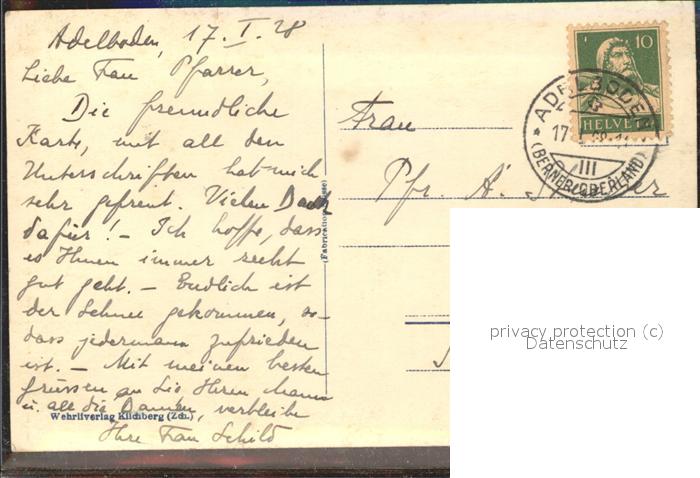 Adelboden, 17. I. 28
Liebe Frau Pfarrer,
Die freundliche
Karte, mit all den
Unterschriften hat mich
sehr gefreut. Vielen Dank
dafür! – Ich hoffe, dass
es Ihnen immer recht
gut geht. – Endlich ist
der Schnee gekommen, so-
dass jedermann zufrieden
ist. – Mit meinen besten
Grüssen an Sie, Ihren Mann
u. alle die Damen, verbleibe
Ihre Frau Schild
Wehrliverlag Kilchberg (Zch.)
10
HELVETIA
ADELBODEN
17
III
(BERNER OBERLAND)
Frau
Pfr. A.
privacy protection (c)
Datenschutz